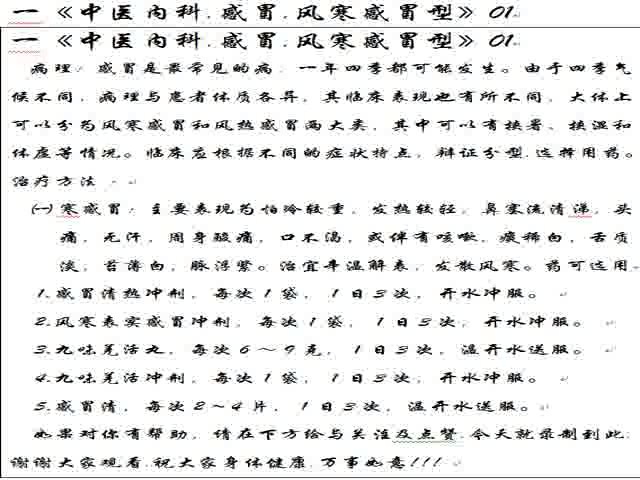 一《中医内科.感冒.风寒感冒型》01.
一《中医内科.感冒.风寒感冒型》01.
病理：感冒是最常见的病，一年四季都可能发生。由于四季气
候不同，病理与患者体质各异，其临床表现也有所不同，大体上
可以分为风寒感冒和风热感冒两大类，其中可以有挟暑、挟湿和
体虚等情况。临床应根据不同的症状特点，辩证分型.选择用药。
治疗方法：
㈠寒感冒：主要表现为怕冷较重，发热较轻，鼻塞流清涕，头
痛，无汗，周身酸痛，口不渴，或伴有咳嗽，痰稀白，舌质
淡，苔薄白，脉浮紧。治宜辛温解表，发散风寒。药可选用。
1.感冒清热冲剂，每次1袋，1日3次，开水冲服。
2.风寒表实感冒冲剂，每次1袋，1日3次，开水冲服。
3.九味羌活丸，每次6～9克，1日3次，温开水送服。
4.九味羌活冲剂，每次1袋，1日3次，开水冲服。
5.感冒清，每次2～4片，1日3次，温开水送服。
如果对你有帮助，请在下方给与关注及点赞.今天就录制到此.
谢谢大家观看.祝大家身体健康.万事如意!!!